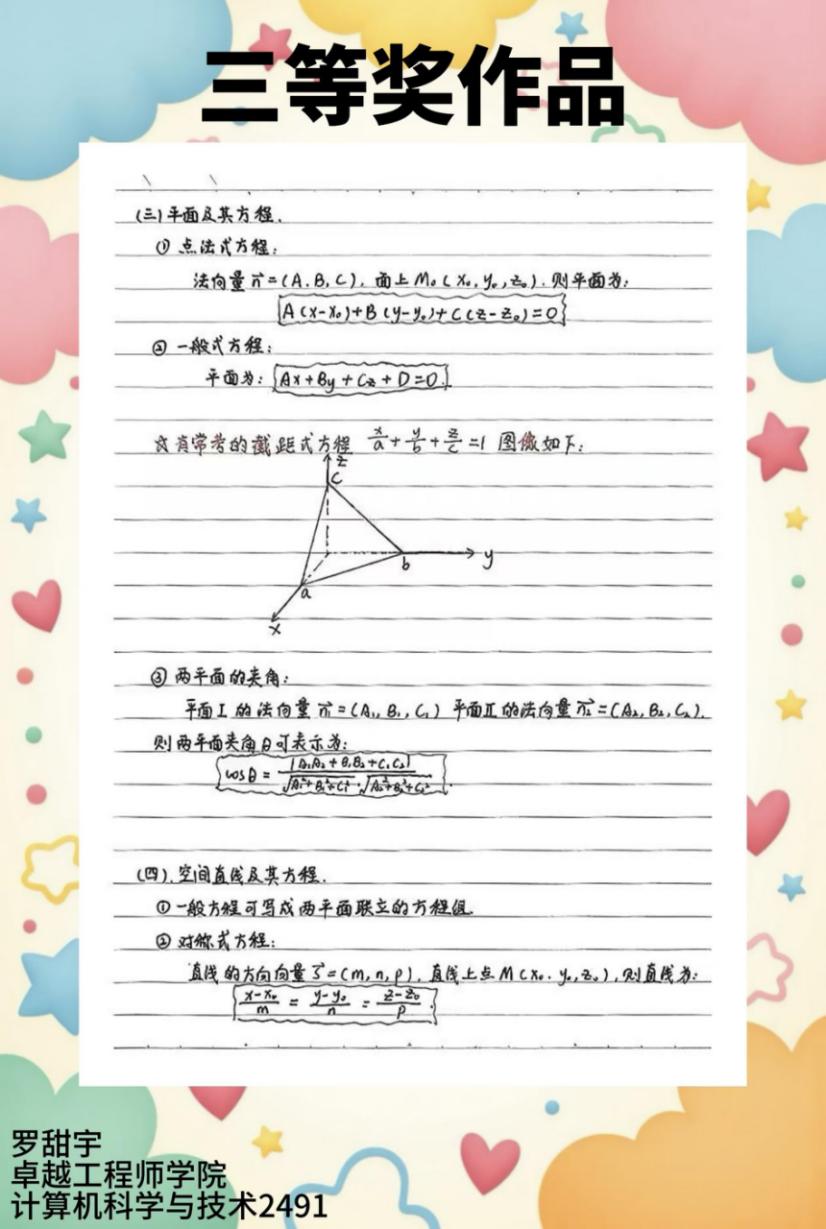 三等奖作品
(三)平面及其方程.
① 点法式方程:
法向量 n⃗=(A.B,C). 面上 M₀(x₀,y₀,z₀). 则平面为:
A(x-x₀)+B(y-y₀)+C(z-z₀)=0
② 一般式方程:
平面为: Ax+By+Cz+D=0.
常考的截距式方程 x/a+y/b+z/c=1 图像如下:
z
c
b
y
a
x
③ 两平面的夹角:
平面Ⅰ的法向量 n⃗=(A₁,B₁,C₁) 平面Ⅱ的法向量 n⃗₂=(A₂,B₂,C₂).
则两平面夹角θ可表示为:
cosθ = |A₁A₂+B₁B₂+C₁C₂| / √A₁²+B₁²+C₁² · √A₂²+B₂²+C₂²
(四).空间直线及其方程.
① 一般方程可写成两平面联立的方程组.
② 对称式方程:
直线的方向向量 s⃗=(m,n,p). 直线上点M(x₀.y₀,z₀),则直线为:
x-x₀/m = y-y₀/n = z-z₀/p.
罗甜宇
卓越工程师学院
计算机科学与技术2491